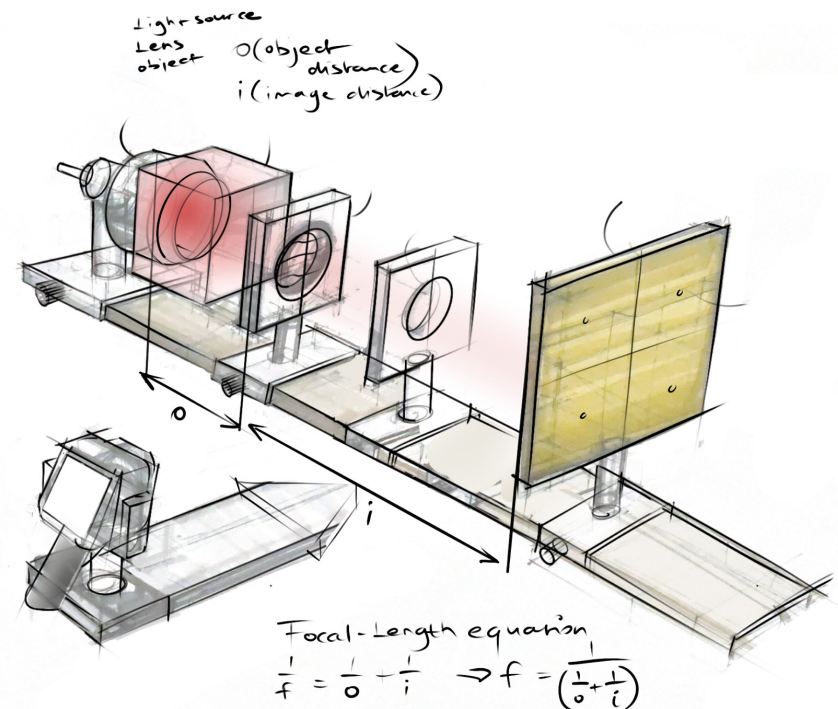 Light source
Lens
object
O(object distance)
i(image distance)
o
i
Focal-Length equation
1/f = 1/o + 1/i ⇒ f = 1/(1/o + 1/i)